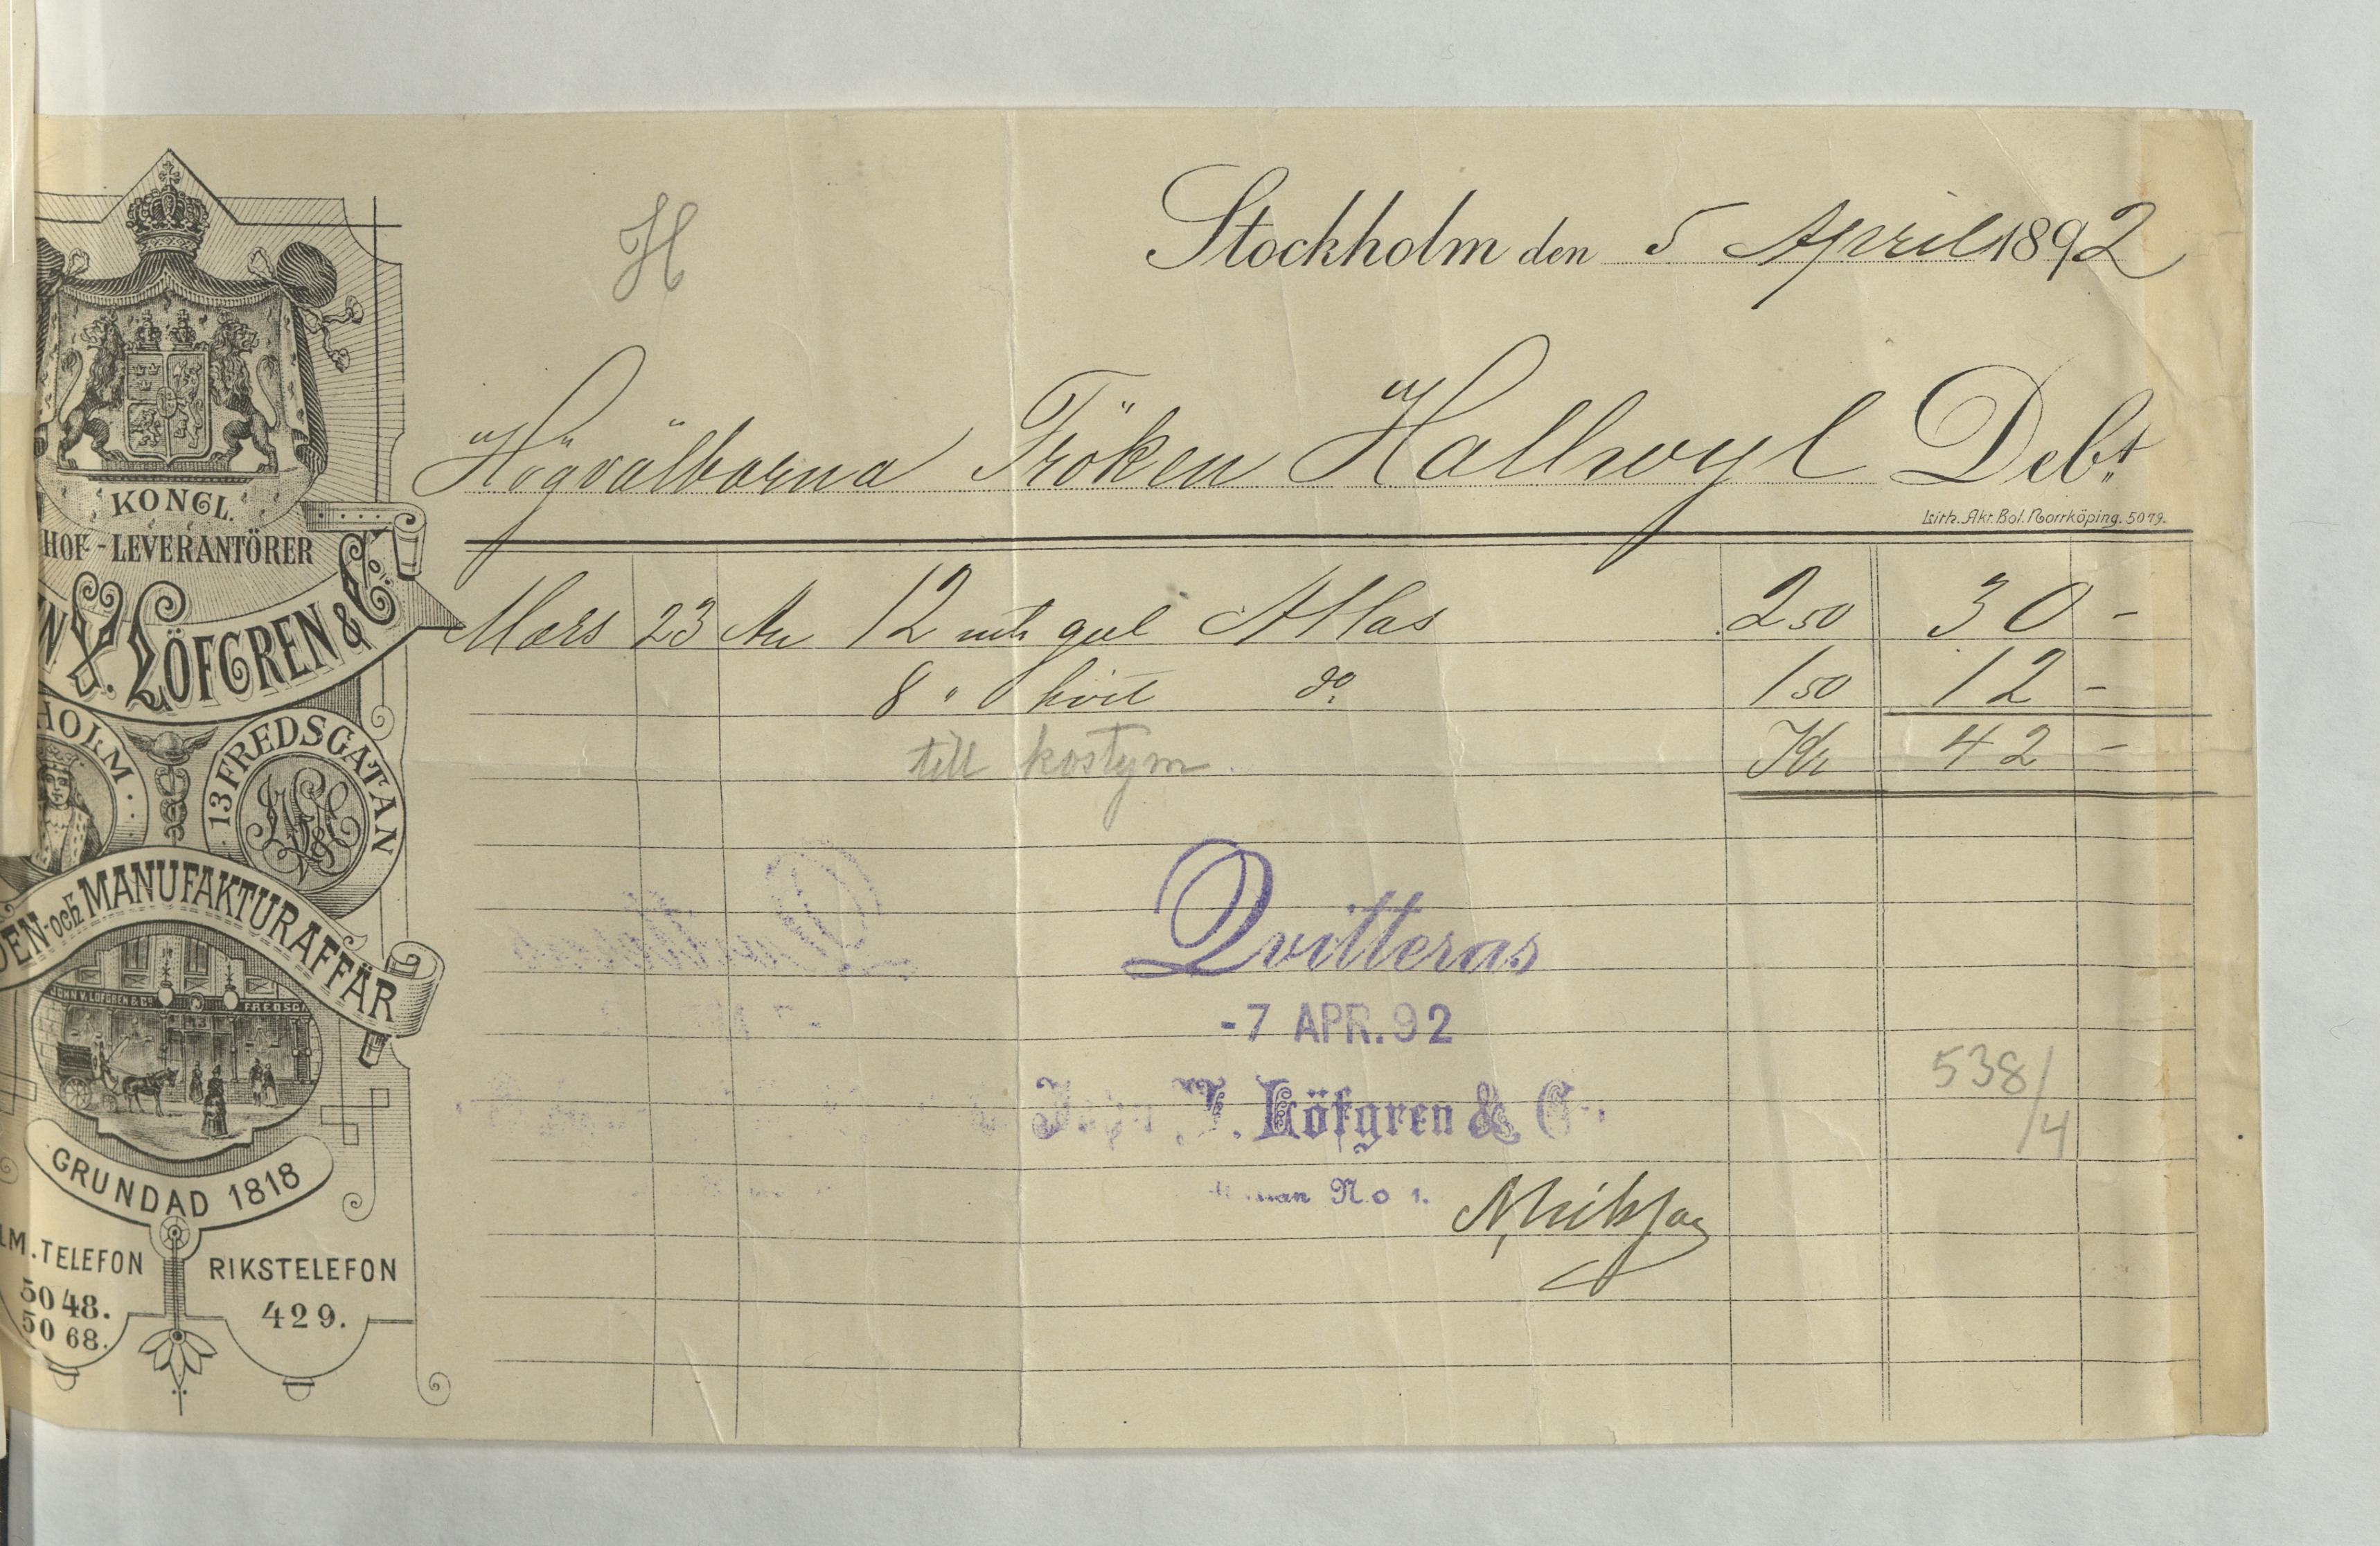 H
Stockholm den 5 April 1892
Högvälborna Fröken Hallwyl Debt
Lith. Akt. Bol. Norrköping. 5079.
Mars 23 An 12 mtr gul Atlas 2 50 30 -
8 " hvit do 1 50 12 -
till kostym. Kr 42 -
Qvitteras
-7 APR. 92
J. Löfgren & C
No 1.
538/4
KONGL.
HOF-LEVERANTÖRER
N V. LÖFGREN & Co.
HOLM.
13 FREDSGATAN
DEN- och MANUFAKTURAFFÄR
JOHN V. LÖFGREN & Co. FREDSG
13
GRUNDAD 1818
LM. TELEFON
5048.
5068.
RIKSTELEFON
429.